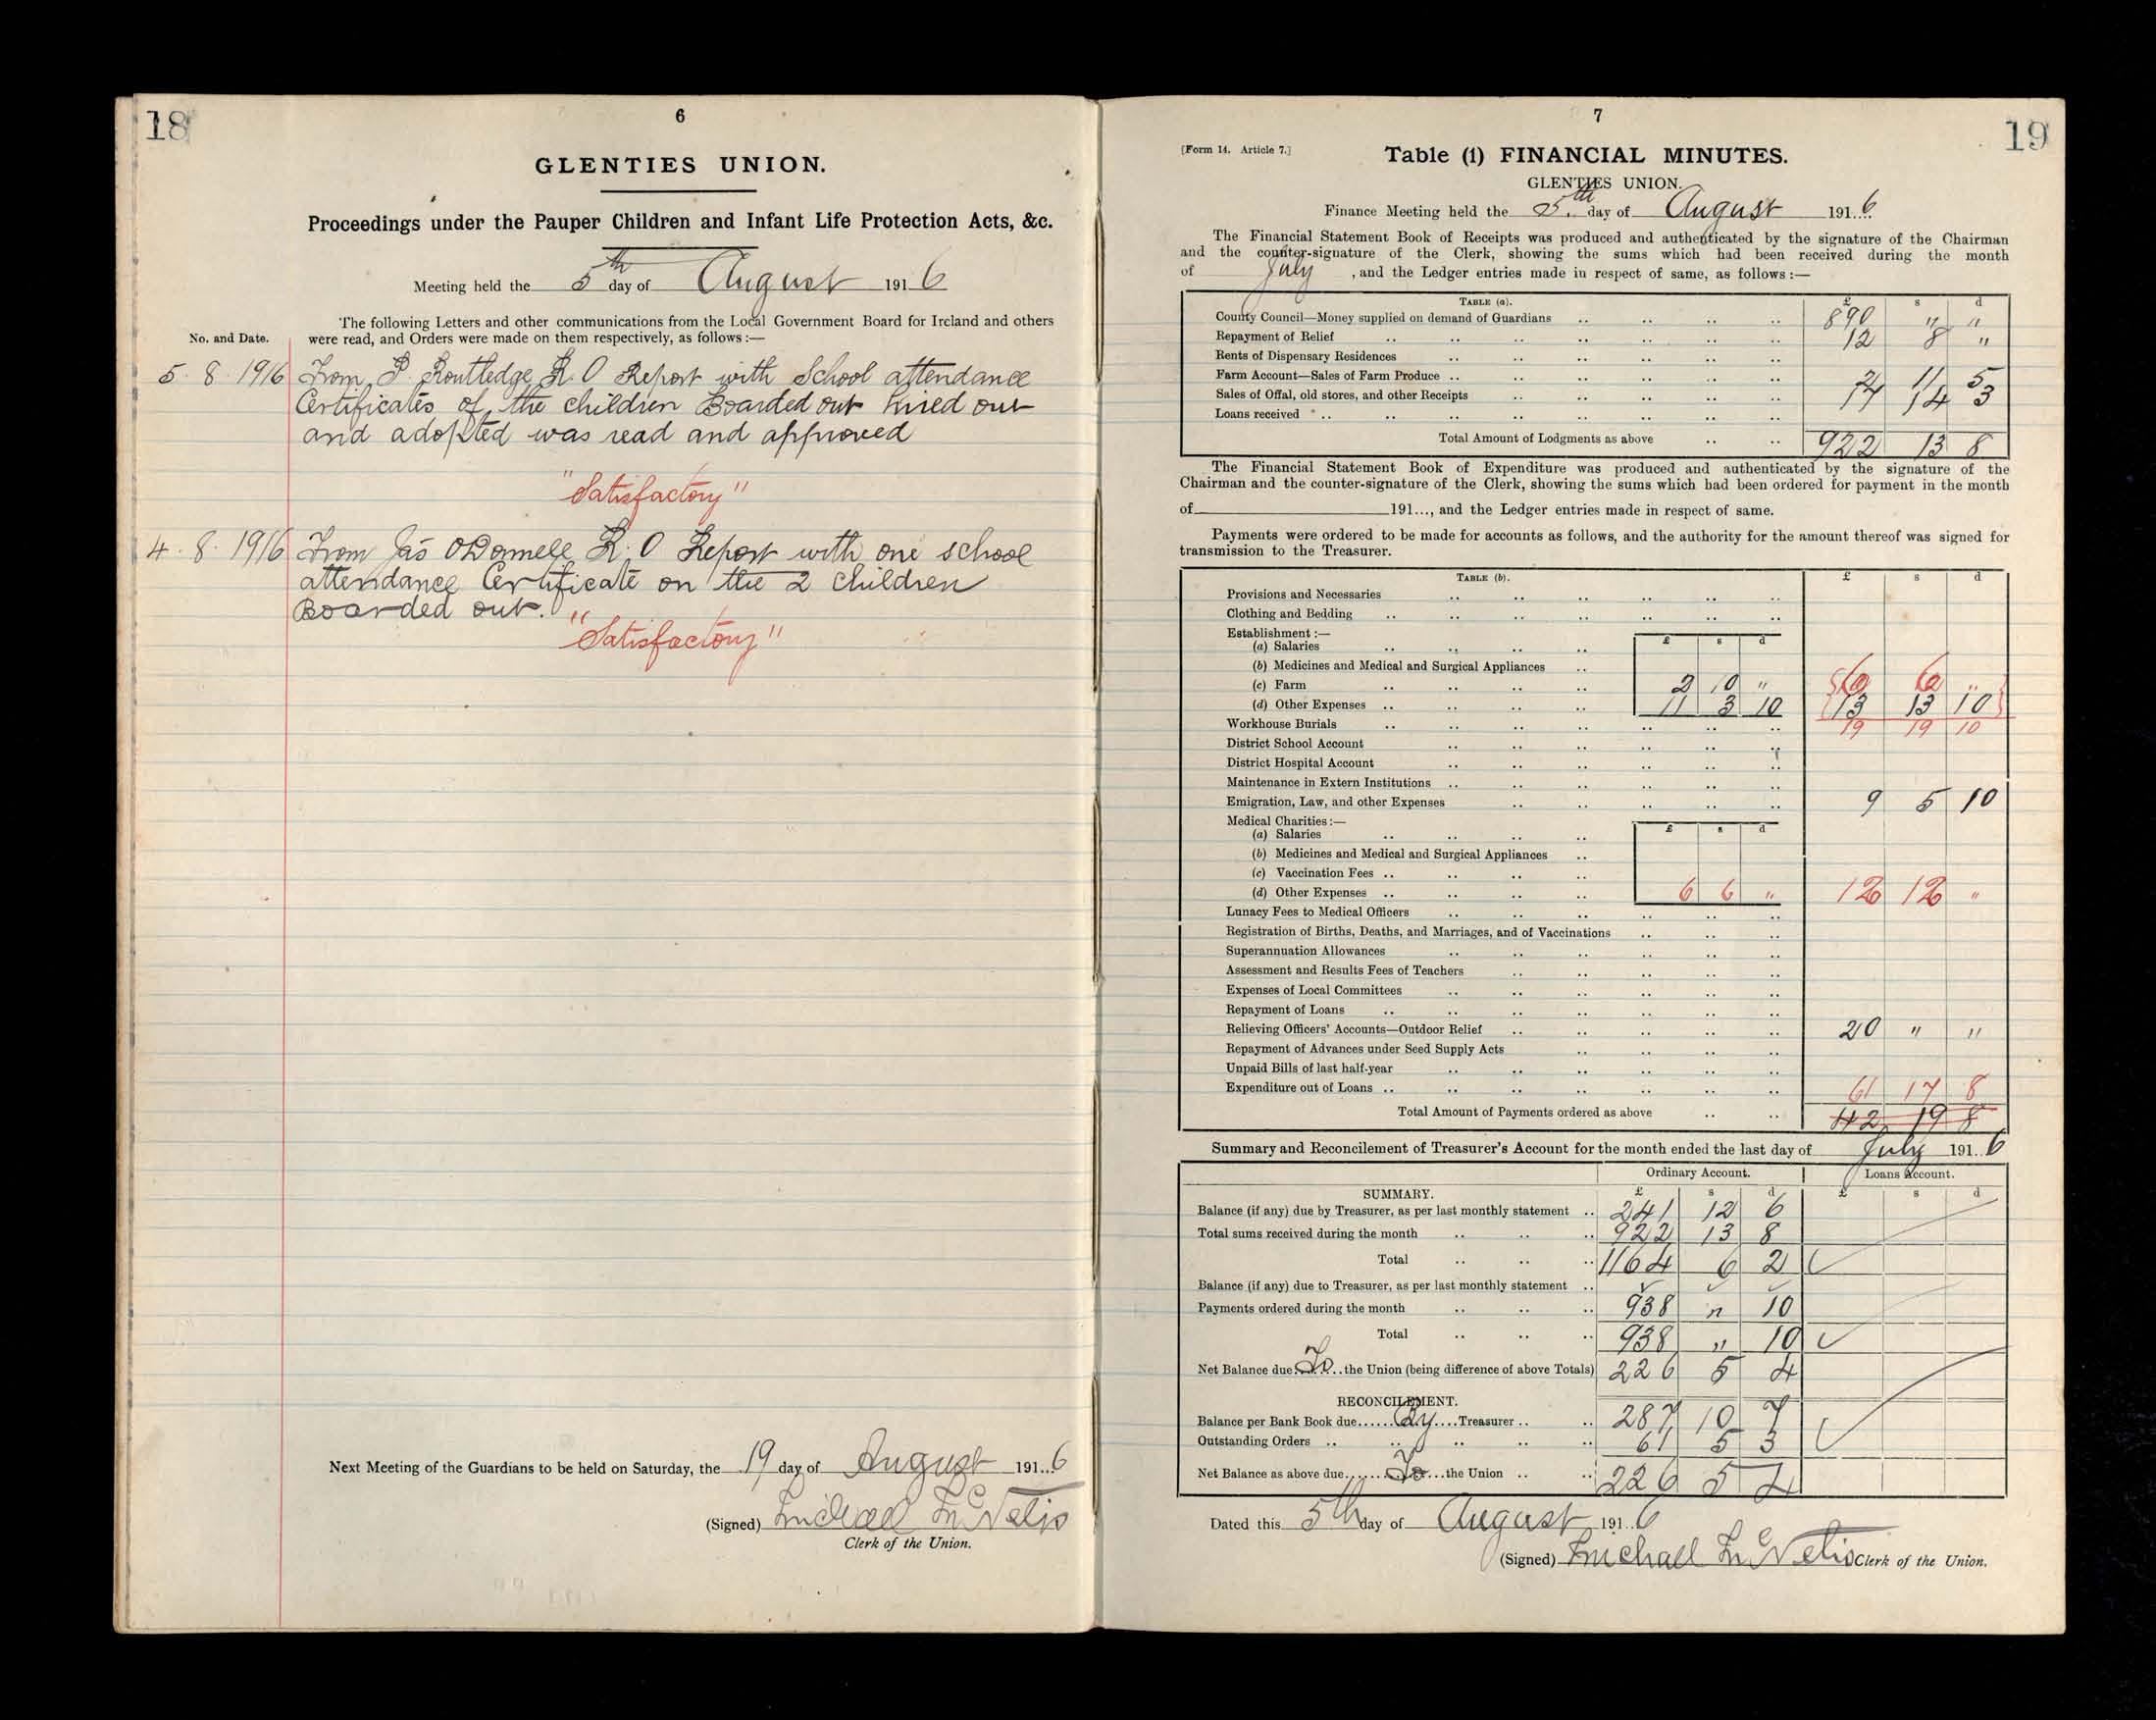 18
6
GLENTIES UNION.
Proceedings under the Pauper Children and Infant Life Protection Acts, &c.
Meeting held the 5th day of August 1916
The following Letters and other communications from the Local Government Board for Ireland and others
No. and Date. were read, and Orders were made on them respectively, as follows :—
5. 8. 1916 From P. Routledge R. O Report with School attendance
Certificates of the children Boarded out hired out
and adopted was read and approved
"Satisfactory"
4. 8. 1916 From Jas ODonnell R. O Report with one school
attendance Certificate on the 2 children
Boarded out.
"Satisfactory"
Next Meeting of the Guardians to be held on Saturday, the 19 day of August 191...6
(Signed) Michael McNelis
Clerk of the Union.
7
19
[Form 14. Article 7.]
Table (1) FINANCIAL MINUTES.
GLENTIES UNION.
Finance Meeting held the 5th day of August 191..6
The Financial Statement Book of Receipts was produced and authenticated by the signature of the Chairman
and the counter-signature of the Clerk, showing the sums which had been received during the month
of July , and the Ledger entries made in respect of same, as follows :—
TABLE (a). £ s d
County Council—Money supplied on demand of Guardians 890 " "
Repayment of Relief 12 8 "
Rents of Dispensary Residences
Farm Account—Sales of Farm Produce 11 5
Sales of Offal, old stores, and other Receipts 14 3
Loans received
Total Amount of Lodgments as above 922 13 8
The Financial Statement Book of Expenditure was produced and authenticated by the signature of the
Chairman and the counter-signature of the Clerk, showing the sums which had been ordered for payment in the month
of 191..., and the Ledger entries made in respect of same.
Payments were ordered to be made for accounts as follows, and the authority for the amount thereof was signed for
transmission to the Treasurer.
TABLE (b). £ s d
Provisions and Necessaries
Clothing and Bedding
Establishment :— £ s d
(a) Salaries
(b) Medicines and Medical and Surgical Appliances
(c) Farm 2 10 " 6 6 "
(d) Other Expenses 11 3 10 13 13 10
Workhouse Burials 19 19 10
District School Account
District Hospital Account
Maintenance in Extern Institutions
Emigration, Law, and other Expenses 9 5 10
Medical Charities :— £ s d
(a) Salaries
(b) Medicines and Medical and Surgical Appliances
(c) Vaccination Fees
(d) Other Expenses 6 6 " 12 12 "
Lunacy Fees to Medical Officers
Registration of Births, Deaths, and Marriages, and of Vaccinations
Superannuation Allowances
Assessment and Results Fees of Teachers
Expenses of Local Committees
Repayment of Loans
Relieving Officers' Accounts—Outdoor Relief 20 " "
Repayment of Advances under Seed Supply Acts
Unpaid Bills of last half-year
Expenditure out of Loans 61 17 8
Total Amount of Payments ordered as above 42 19 8
Summary and Reconcilement of Treasurer's Account for the month ended the last day of July 191..6
Ordinary Account. Loans Account.
SUMMARY. £ s d £ s d
Balance (if any) due by Treasurer, as per last monthly statement 241 12 6
Total sums received during the month 922 13 8
Total 1164 6 2
Balance (if any) due to Treasurer, as per last monthly statement
Payments ordered during the month 938 " 10
Total 938 " 10
Net Balance due To the Union (being difference of above Totals) 226 5 4
RECONCILEMENT.
Balance per Bank Book due By Treasurer 287 10 7
Outstanding Orders 61 5 3
Net Balance as above due To the Union 226 5 4
Dated this 5th day of August 191..6
(Signed) Michael McNelis Clerk of the Union.